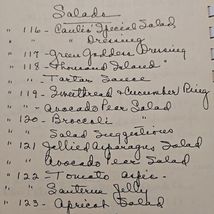 Salads
" 116 - Paulie' Special Salad
" " Dressing
" 117 - Green Goddess Dressing
" 118 - Thousand Island "
" " Tartar Sauce
" 119 - Sweetbread & Cucumber Ring
" " - Avocado Pear Salad
" 120 - Broccoli "
" " Salad Suggestions
" 121 Jellied Asparagus Salad
" " Avocado Pear Salad
" 122 Tomato Aspic -
" " Sauterne Jelly
" 123 - Apricot Salad